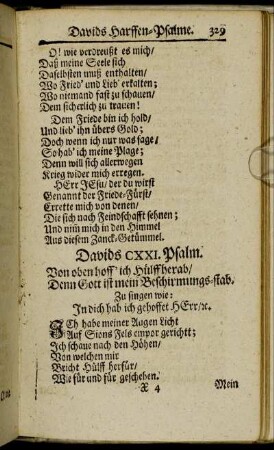 Davids Harffen-Psalme. 329
O! wie verdreußt es mich/
Daß meine Seele sich
Daselbsten muß enthalten/
Wo Fried' und Lieb' erkalten;
Wo niemand fast zu schauen/
Dem sicherlich zu trauen!
Dem Friede bin ich hold/
Und lieb' ihn übers Gold;
Doch wenn ich nur was sage/
So hab' ich meine Plage;
Denn will sich allerwegen
Krieg wider mich erregen.
HErr JEsu/ der du wirst
Genannt der Friede-Fürst/
Errette mich von denen/
Die sich nach Feindschafft sehnen;
Und nim̃ mich in den Himmel
Aus diesem Zanck-Getümmel.
Davids CXXI. Psalm.
Von oben hoff' ich Hülff herab/
Denn Gott ist mein Beschirmungs-stab.
Zu singen wie:
In dich hab ich gehoffet HErr/ꝛc.
ICh habe meiner Augen Licht
Auf Sions Fels empor gericht;
Ich schaue nach den Höhen/
Von welchen mir
Bricht Hülff herfür/
Wie für und für geschehen.
X 4 Mein